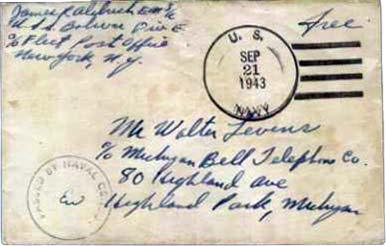 James R
U.S.S. Boise Div E
c/o Fleet Post Office
New York, N.Y.
Free
U. S.
SEP
21
1943
NAVY
Mr Walter Levens
c/o Michigan Bell Telephone Co.
80 Highland Ave
Highland Park, Michigan
PASSED BY NAVAL